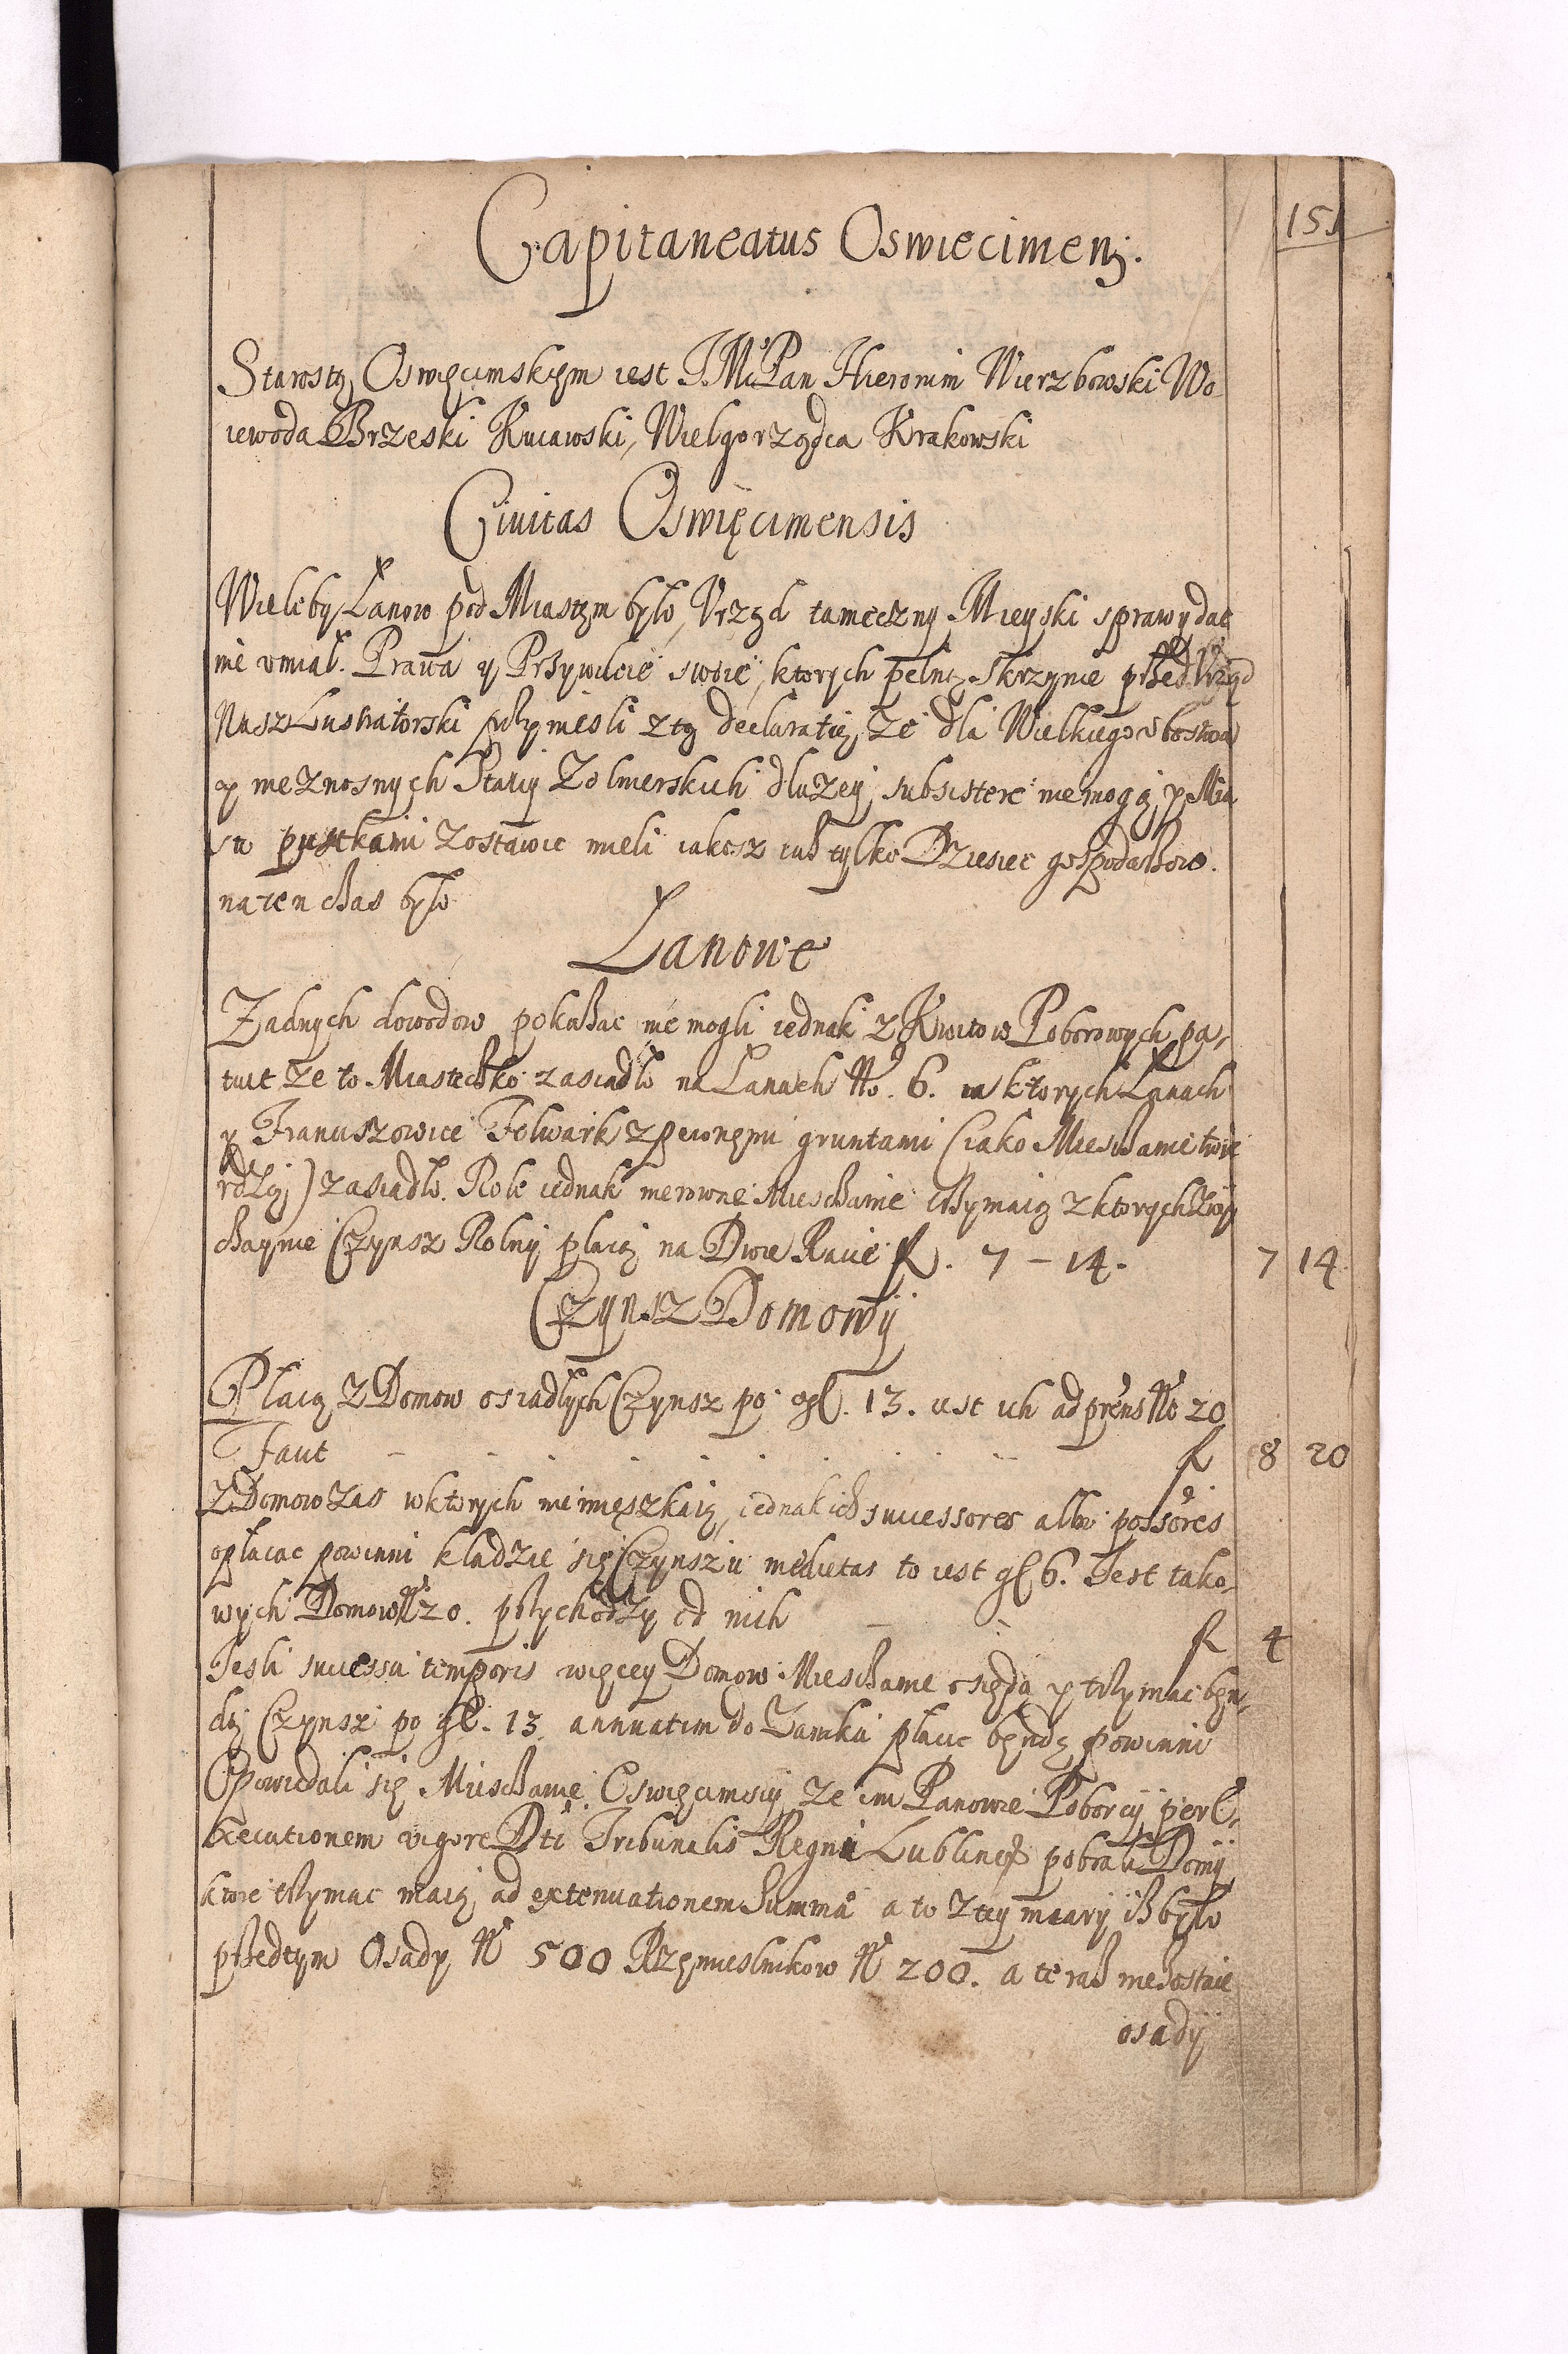 151
Capitaneatus Oswiecimen.
Starostą Oswięcimskięm iest J.M. Pan Hieronim Wierzbowski Wo-
iewoda Brzeski Kuiawski, Wielgorządca Krakowski
Civitas Oswięcimensis
Wieleby Łanow pod Miastęm było, Vrząd tameczny Mieyski sprawy dac
nie vmiał. Prawa y Przywileie swoie, ktorych pełną skrzynie przed Vrząd
Nasz Lustratorski przyniesli z tą declaratią, że dla Wielkiego vbostwa
y nieznosnych Staciy Zołnierskich dłużey subsistere niemogą, y Mia
sto pustkami zostawic mieli iakosz iuż tylko Dziesięc gospodarzow
na ten czas było
Łanowe
Żadnych dowodow pokazac nie mogli iednak z Kwitow Poborowych pa-
tuit że to Miasteczko zasiadło na Łanach No. 6. na ktorych Łanach
y Januszowice Folwark z pewnęmi gruntami (iako Mieszczanie twie
rdżą) zasiadło. Role iednak nierowne Mieszczanie trzymaią z ktorych
czaynie Czynsz Rolny płacą na Dwie Racie f. 7 - 14. 7 14
Czynsz Domowy
Płacą z Domow osiadłych Czynsz po gl. 13. iest ich ad prens No 20
Faut - - - - f 8 20
z Domow zas w ktorych nie mięszkaią, iednak ich successores albo possores
opłacac powinni kładzie się Czynszu medietas to iest gl 6. Jest tako-
wych Domow No 20. przychodzy od nich - - f 4
Jesli successu temporis więcey Domow Mieszczanie osiędą y trzymac bęn-
dą Czynsz po gl. 13 annuatim do Zamku płacic bęndą powinni
Opowiedali się Mieszczanie Oswięcimscy że im Panowie Poborcy per
Executionem vigore Dti Tribunalis Regni Lublinen pobrali Domy
ktore trzymac maią ad extenuationem Summa a to z tey miary iż było
przedtym Osady No 500 Rzęmieslnikow No 200. a teraz niezostaie
osady